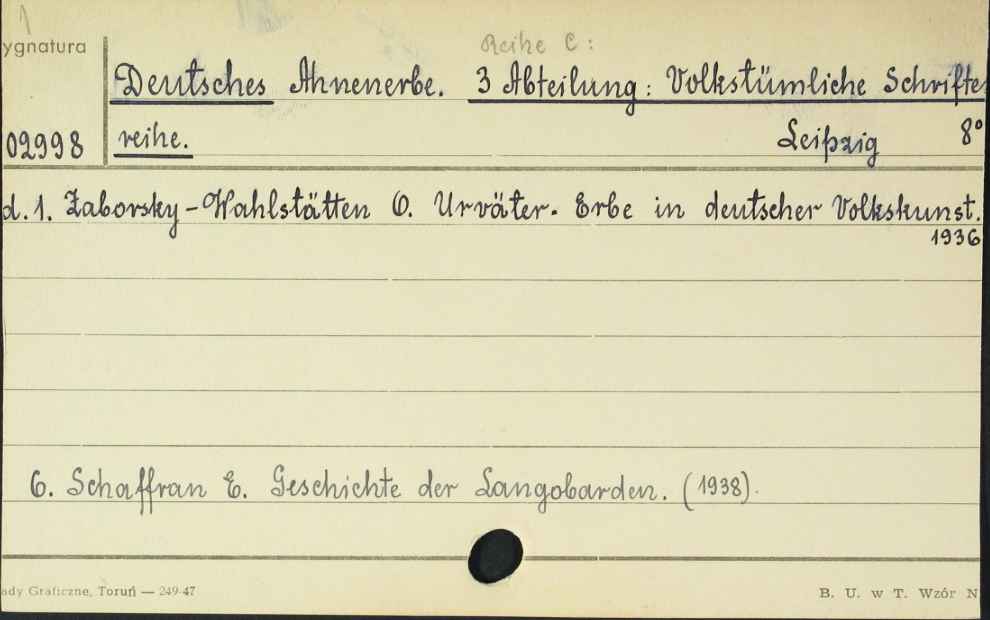 1
ygnatura
Reihe C:
Deutsches Ahnenerbe. 3 Abteilung: Volkstümliche Schrifte
02998 reihe. Leipzig 8°
d. 1. Zaborsky-Wahlstätten O. Urväter-Erbe in deutscher Volkskunst.
1936
6. Schaffran E. Geschichte der Langobarden. (1938).
ady Graficzne, Toruń — 249-47
B. U. w T. Wzór N